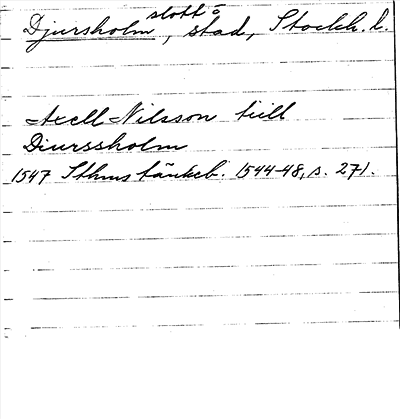 Djursholm slott o, stad, Stockh. l.
Axell Nilsson till
Diurssholm
1547 Sthms tänkeb. 1544-48, s. 271.